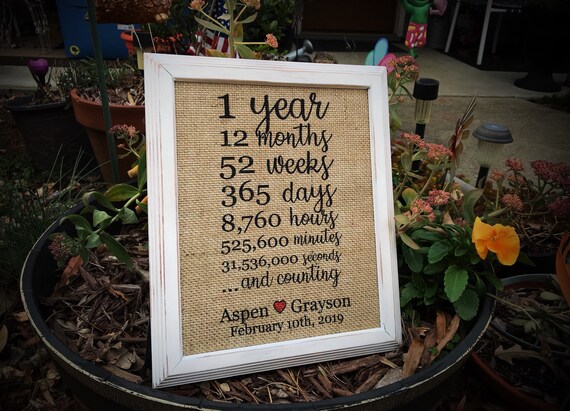 1 year
12 months
52 weeks
365 days
8,760 hours
525,600 minutes
31,536,000 seconds
...and counting
Aspen ❤ Grayson
February 10th, 2019